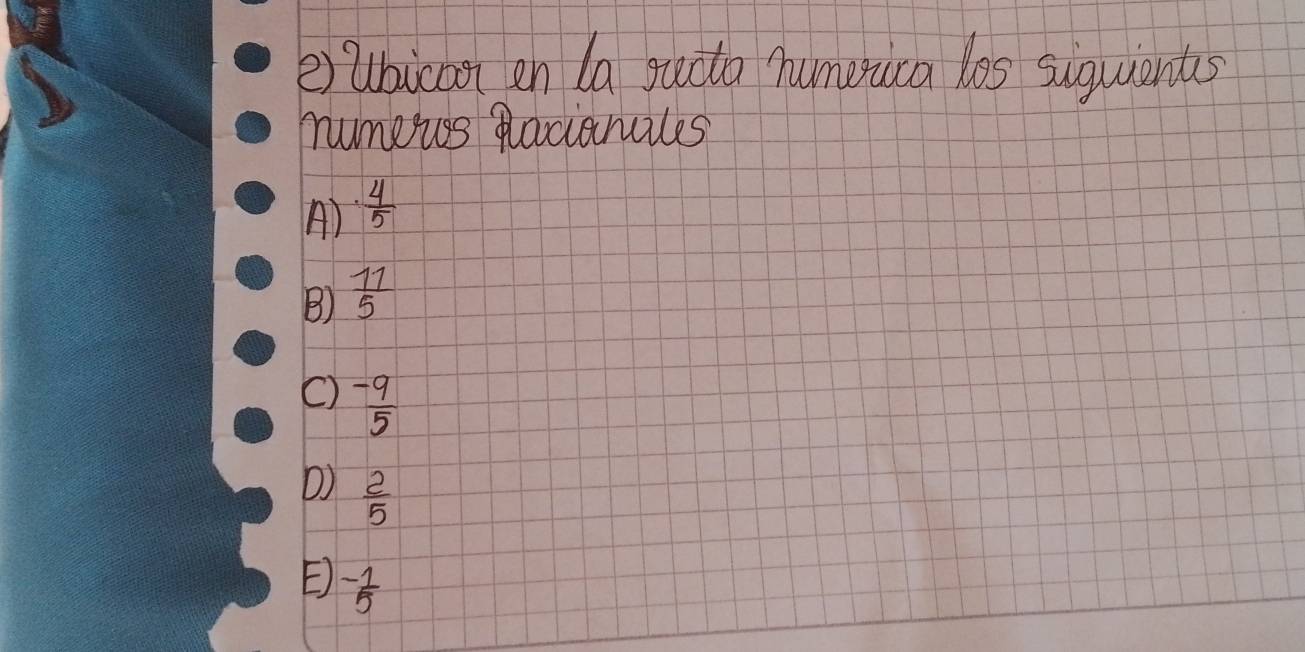 e) Ubicar en la recta numerica los siguientes
numeros Racionales
A) 4/5
B) 11/5
C) -9/5
D) 2/5
E) -1/5